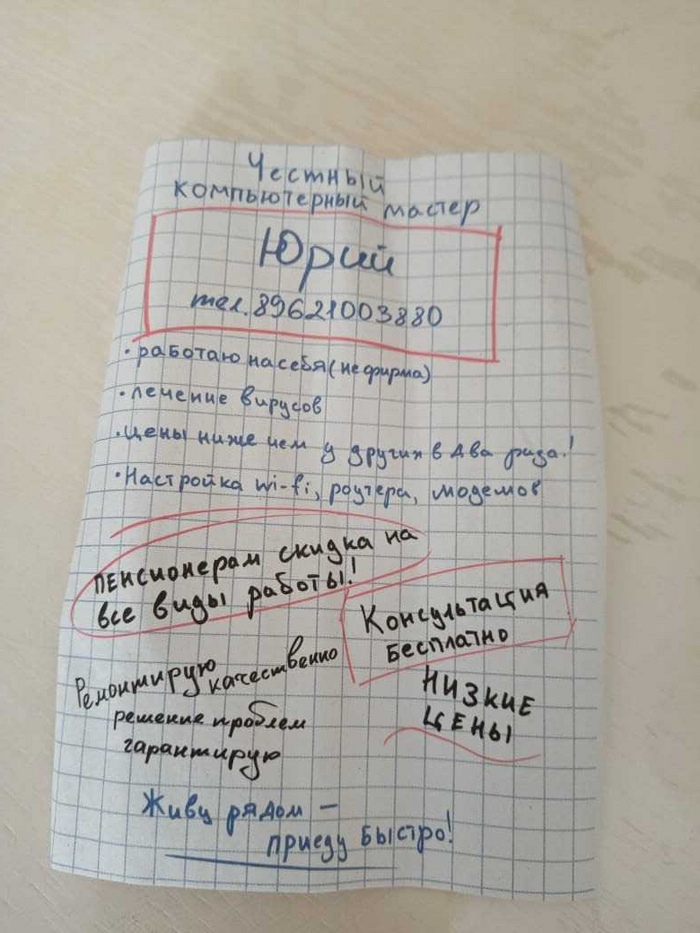 Честный
компьютерный мастер
Юрий
тел. 89621003880
• работаю на себя (не фирма)
• лечение вирусов
• цены ниже чем у других в два раза!
• Настройка wi-fi, роутера, модемов
пенсионерам скидка на
все виды работы!
Консультация
бесплатно
Ремонтирую
качественно
решение проблем
гарантирую
НИЗКИЕ
ЦЕНЫ
Живу рядом –
приеду быстро!